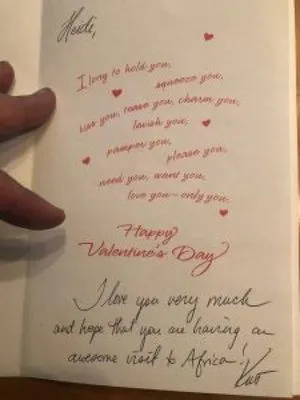 Heidi,
I long to hold you,
squeeze you,
kiss you, tease you, charm you,
lavish you,
pamper you,
please you,
need you, want you,
love you—only you,
Happy
Valentine's Day
I love you very much
and hope that you are having an
awesome visit to Africa!
Kurt